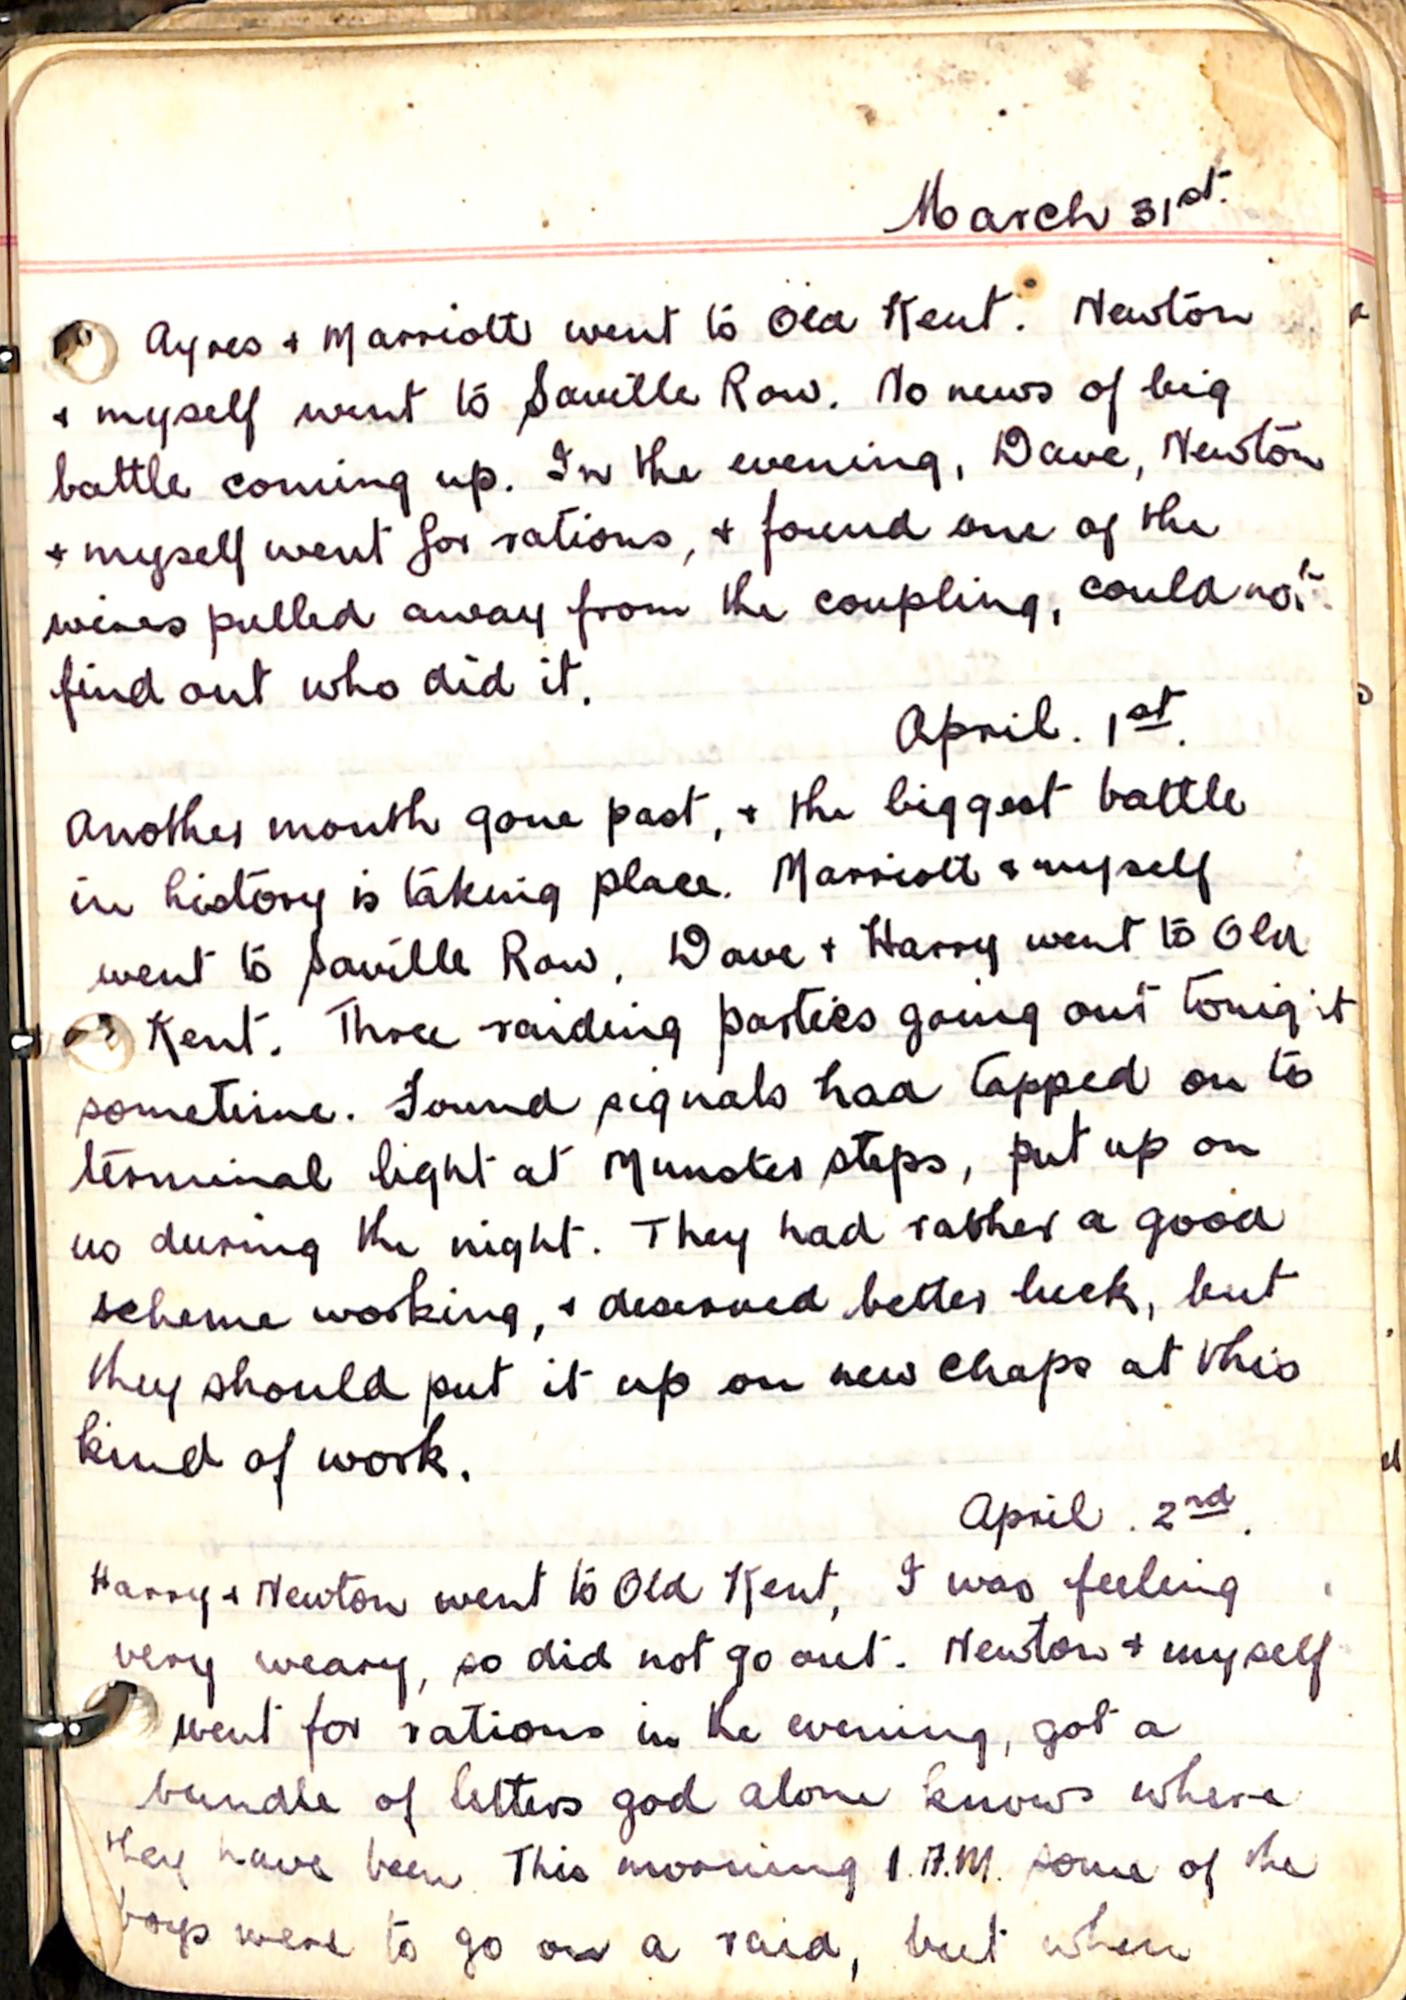 March 31st.
Ayres + Marriott went to Old Kent. Newton
+ myself went to Saville Row. No news of big
battle coming up. In the evening, Dave, Newton
+ myself went for rations, + found one of the
wires pulled away from the coupling, could not
find out who did it.
April. 1st.
Another month gone past, + the biggest battle
in history is taking place. Marriott + myself
went to Saville Row, Dave + Harry went to Old
Kent. Three raiding parties going out tonight
sometime. Found signals had tapped on to
terminal light at Munster steps, put up on
us during the night. They had rather a good
scheme working, + deserved better luck, but
they should put it up on new chaps at this
kind of work.
April. 2nd.
Harry + Newton went to Old Kent, I was feeling
very weary, so did not go out. Newton + myself
went for rations in the evening, got a
bundle of letters god alone knows where
they have been. This morning 1. A.M. some of the
boys were to go on a raid, but when